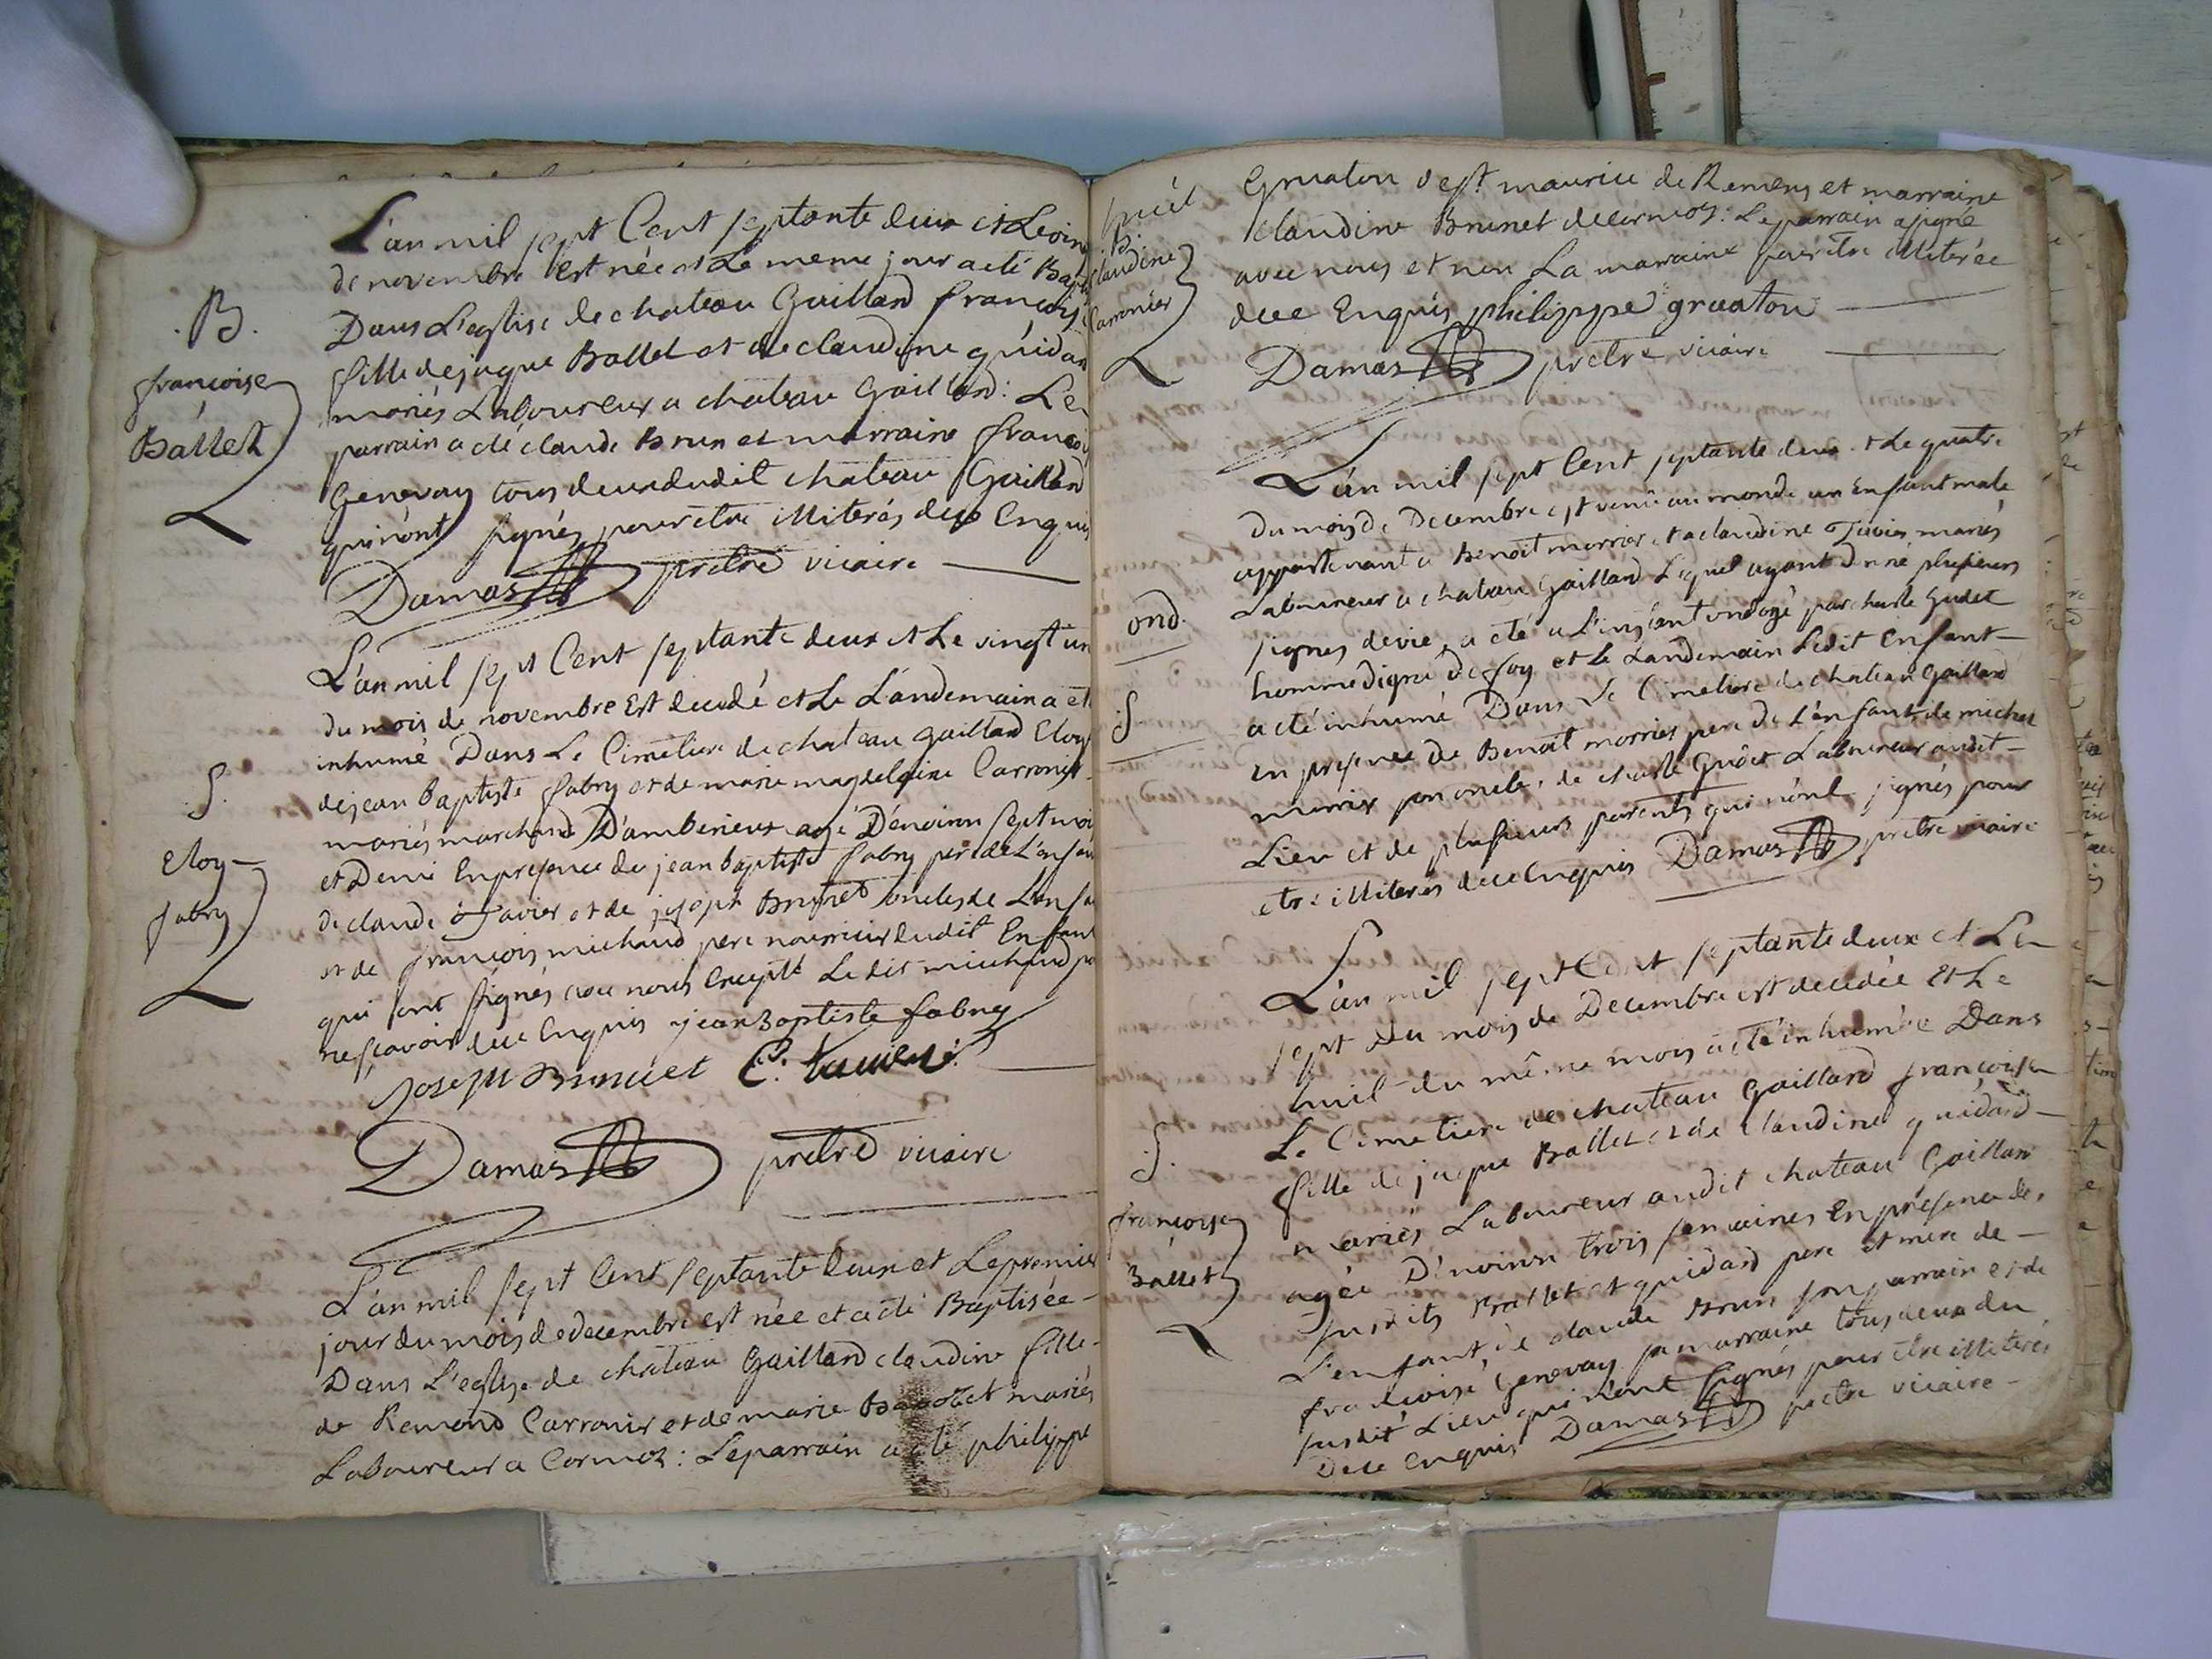 .B.
françoise
Ballet
L'an mil sept Cent septante deux et Le
de novembre Est née et Le meme jour a eté
Dans L'eglise de chateau Gaillard françoise
fille de jaque Ballet et de claudine guidard
mariés Laboureur a chateau Gaillard: Le
parrain a eté claude Brun et marraine
Genevay tous deux dudit chateau Gaillard
qui n'ont signés pour etre illiterés de ce Enquis
Damas pretre vicaire
.S.
Eloy
fabry
L'an mil sept Cent septante deux et Le vingt un
du mois de novembre Est decedé et Le Landemain a eté
inhumé Dans Le Cimetiere de chateau gaillard Eloy
de jean baptiste fabry et de marie magdelaine Carronier
mariés marchand D'amberieux agé D'environ sept mois
et Demi En presence de jean baptiste fabry pere de L'enfant
de claude tavier et de joseph Brunet oncles de L'enfant
et de françois michaud pere nourricier dudit Enfant
qui ont signés avec nous Excepté Le dit michaud
ne sçavoir de ce Enquis jean Baptiste fabry
Joseph Brunet C. tavier
Damas pretre vicaire
L'an mil sept Cent septante deux et Le premier
jour du mois de decembre est née et a eté Baptisée
Dans L'eglise de chateau Gaillard claudine fille
de Remond Carronier et de marie mariés
Laboureur a Cormoz: Le parrain a eté philippe
.B.
claudine
Carronier
Gruaton de st maurice de Remens et marraine
claudine Brunet de cormoz: Le parrain a signé
avec nous et non La marraine pour etre illiterée
de ce Enquis philippe gruaton
Damas pretre vicaire
ond.
S
L'an mil sept Cent septante deux et Le quatre
du mois de Decembre est venu au monde un Enfant male
appartenant a Benoit morrier et a claudine mariés
Laboureur a chateau Gaillard Lequel ayant donné plusieurs
signes de vie, a eté a L'instant ondoyé par charle Gudet
homme digne de foy et Le Landemain Ledit Enfant
a eté inhumé Dans Le Cimetiere de chateau Gaillard
en presence de Benoit morrier pere de L'enfant de michel
morrier son oncle, de charle Gudet Laboureur audit
Lieu et de plusieurs parents qui n'ont signés pour
etre illiterés de ce Enquis Damas pretre vicaire
.S.
françoise
Ballet
L'an mil sept Cent septante deux et Le
sept du mois de Decembre est decedée et Le
huit du même mois a eté inhumée Dans
Le Cimetiere de chateau Gaillard françoise
fille de jaque Ballet et de claudine guidard
mariés Laboureur audit chateau Gaillard
agée D'environ trois semaines En presence des
susdits Ballet et guidard pere et mere de
L'enfant de claude Brun son parrain et de
françoise Genevay sa marraine tous deux du
susdit Lieu qui n'ont signés pour etre illiterés
De ce Enquis Damas pretre vicaire